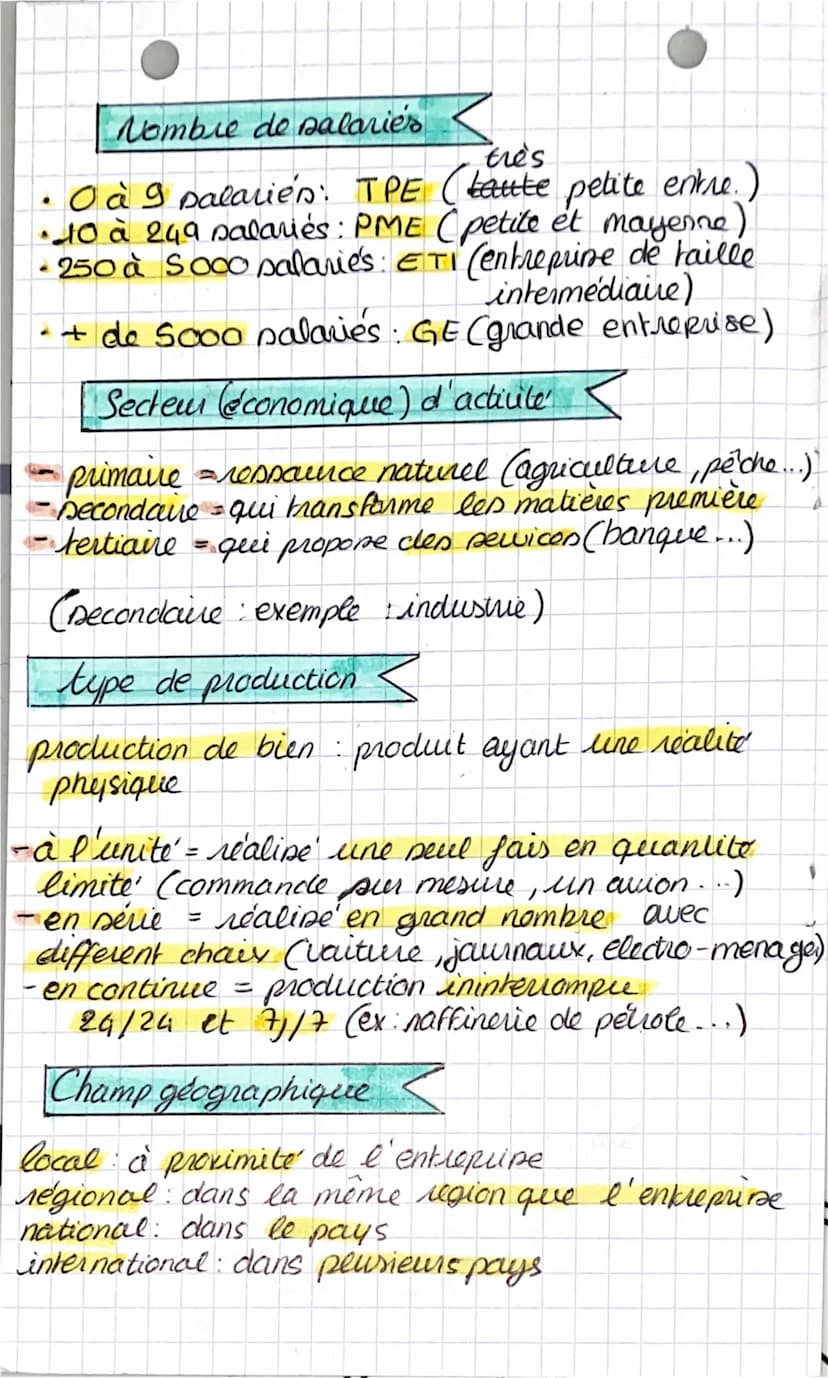 Nombre de salariés
très
• 0 à 9 salariés : TPE (toute petite entre.)
• 10 à 249 salariés : PME (petite et moyenne)
• 250 à 5000 salariés : ETI (entreprise de taille
intermédiaire)
• + de 5000 salariés : GE (grande entreprise)
Secteur (économique) d'activité
- primaire = ressource naturel (agriculture, pêche...)
- secondaire = qui transforme les matières première
- tertiaire = qui propose des services (banque...)
(secondaire : exemple : industrie)
type de production
production de bien : produit ayant une réalité
physique
- à l'unité = réalisé une seul fois en quantité
limité (commande sur mesure, un avion...)
- en série = réalisé en grand nombre avec
différent choix (voiture, journaux, électro-menagé)
- en continue = production ininterrompue
24/24 et 7j/7 (ex : raffinerie de pétrole...)
Champ géographique
local : à proximité de l'entreprise
régional : dans la même region que l'entreprise
national : dans le pays
international : dans plusieurs pays